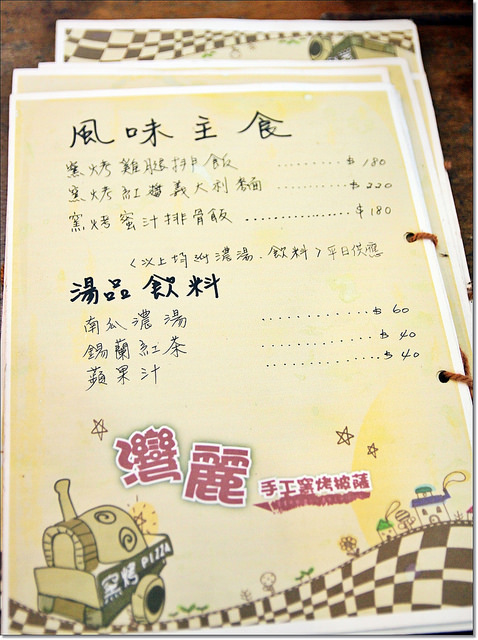 風味主食
窯烤雞腿排飯 ......... $180
窯烤紅醬義大利麵 ......... $220
窯烤蜜汁排骨飯 ......... $180
(以上均附濃湯、飲料) 平日供應
湯品飲料
南瓜濃湯 ......... $60
錫蘭紅茶 ......... $40
蘋果汁 ......... $40
灣麗
手工窯烤披薩
窯烤 PIZZA